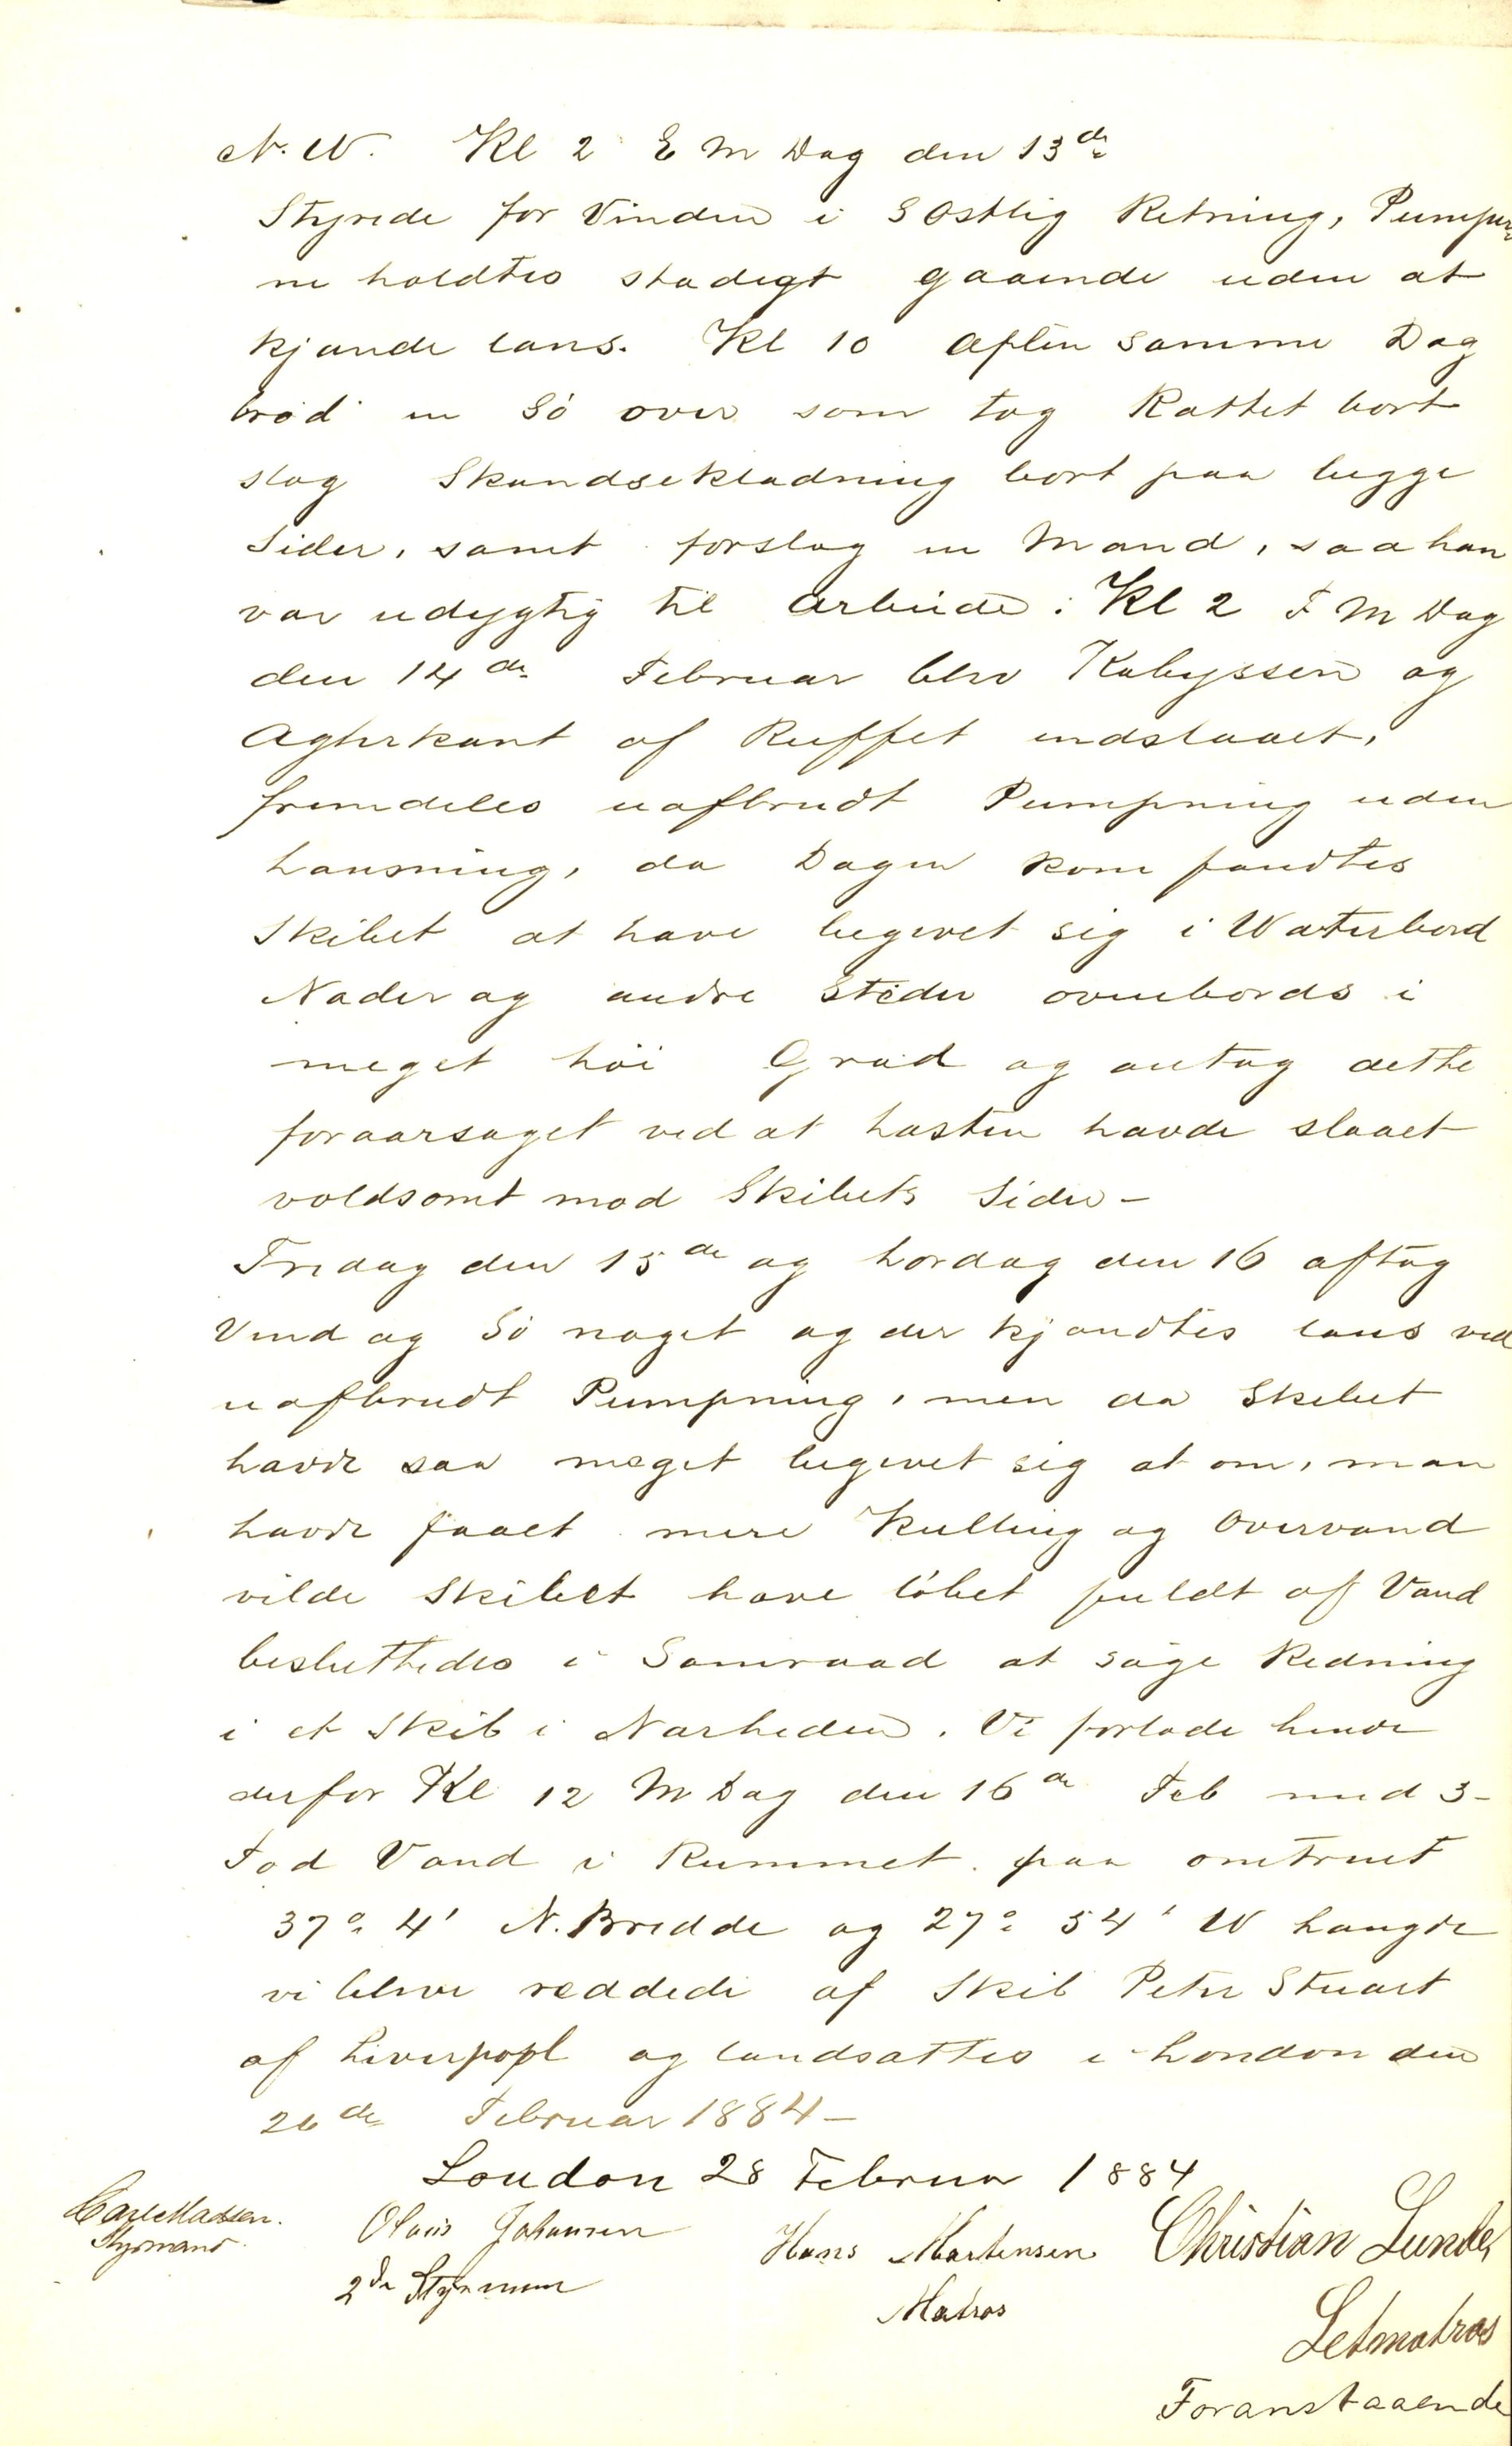 N.W. Kl 2 E M Dag den 13de
Styrede for Vinden i SOstlig Retning, Pumper-
ne holdtes stadigt gaaende uden at
kjænde læns. Kl 10 Aften samme Dag
brød en Sö over som tog Rattet bort
slog Skandseklædning bort paa begge
Sider, samt forslog en Mand, saa han
var udygtig til Arbeide. Kl 2 F M Dag
den 14de Februar blev Kabyssen og
Agterkant af Ruffet indslaaet,
fremdeles uafbrudt Pumpning uden
Lænsning, da Dagen kom fandtes
Skibet at have begivet sig i Waterbord
Nader og andre Steder ovenbords i
meget höi Grad og antog dette
foraarsaget ved at Lasten havde slaaet
voldsomt mod Skibets Sider -
Fredag den 15de og Lørdag den 16 aftog
Vind og Sö noget og der kjændtes læns ved
uafbrudt Pumpning, men da Skibet
havde saa meget begivet sig at om, man
havde faaet mere Kulling og Overvand
vilde Skibet have löbet fuldt af Vand
besluttedes i Samraad at söge Redning
i et Skib i Nærheden. Vi forlode hende
derfor Kl 12 M Dag den 16de Feb med 3-
Fod Vand i Rummet paa omtrent
37° 4' N. Bredde og 27° 54' W Længde
vi bleve reddede af Skib Peter Stuart
af Liverpopl og landsattes i London den
26de Februar 1884-
London 28 Februar 1884
Carl Madsen. Olaus Johansen Hans Martensen Christian Lunde,
Styrmand. 2de Styrmann Matros Letmatros
Foranstaaende